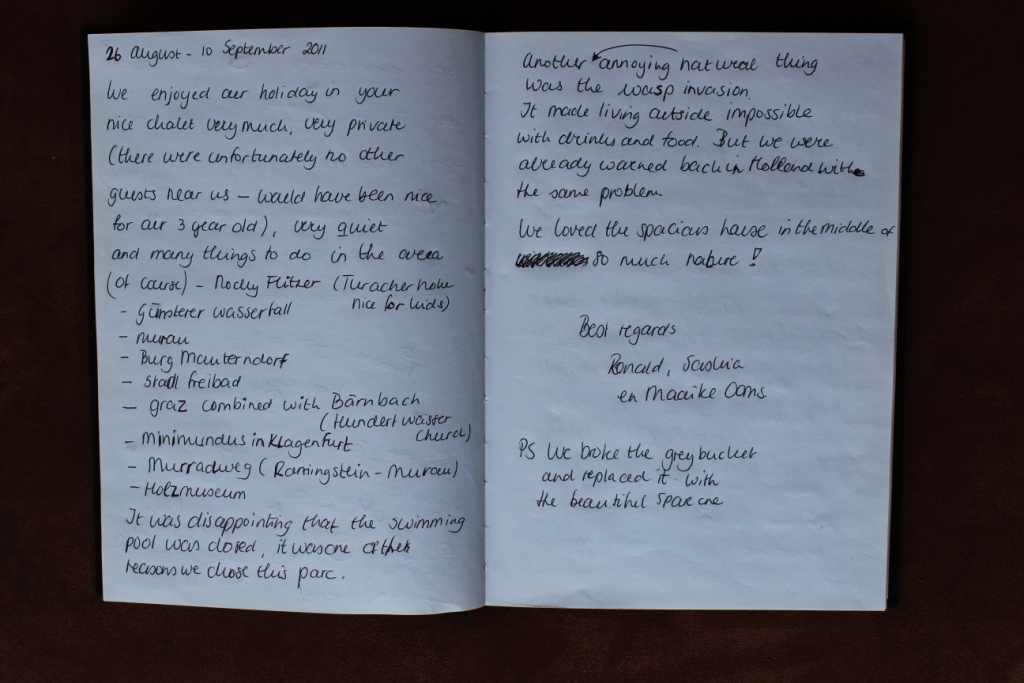 26 August - 10 September 2011
We enjoyed our holiday in your
nice chalet very much, very private
(there were unfortunately no other
guests near us - would have been nice
for our 3 year old), very quiet
and many things to do in the area
(of course) - Nocky Flitzer (Turacher hohe
nice for kids)
- Günsterer wasserfall
- Murau
- Burg Mauterndorf
- Stadl freibad
- Graz combined with Bärnbach
(Hundertwasser
church)
- Minimundus in Klagenfurt
- Murradweg (Ramingstein - Murau)
- Holzmuseum
It was disappointing that the swimming
pool was closed, it was one of the
reasons we chose this parc.
Another annoying natural thing
was the wasp invasion.
It made living outside impossible
with drinks and food. But we were
already warned back in Holland with
the same problem.
We loved the spacious house in the middle of
so much nature!
Best regards
Ronald, Saskia
en Maaike Oams.
PS We broke the grey bucket
and replaced it with
the beautiful spare one